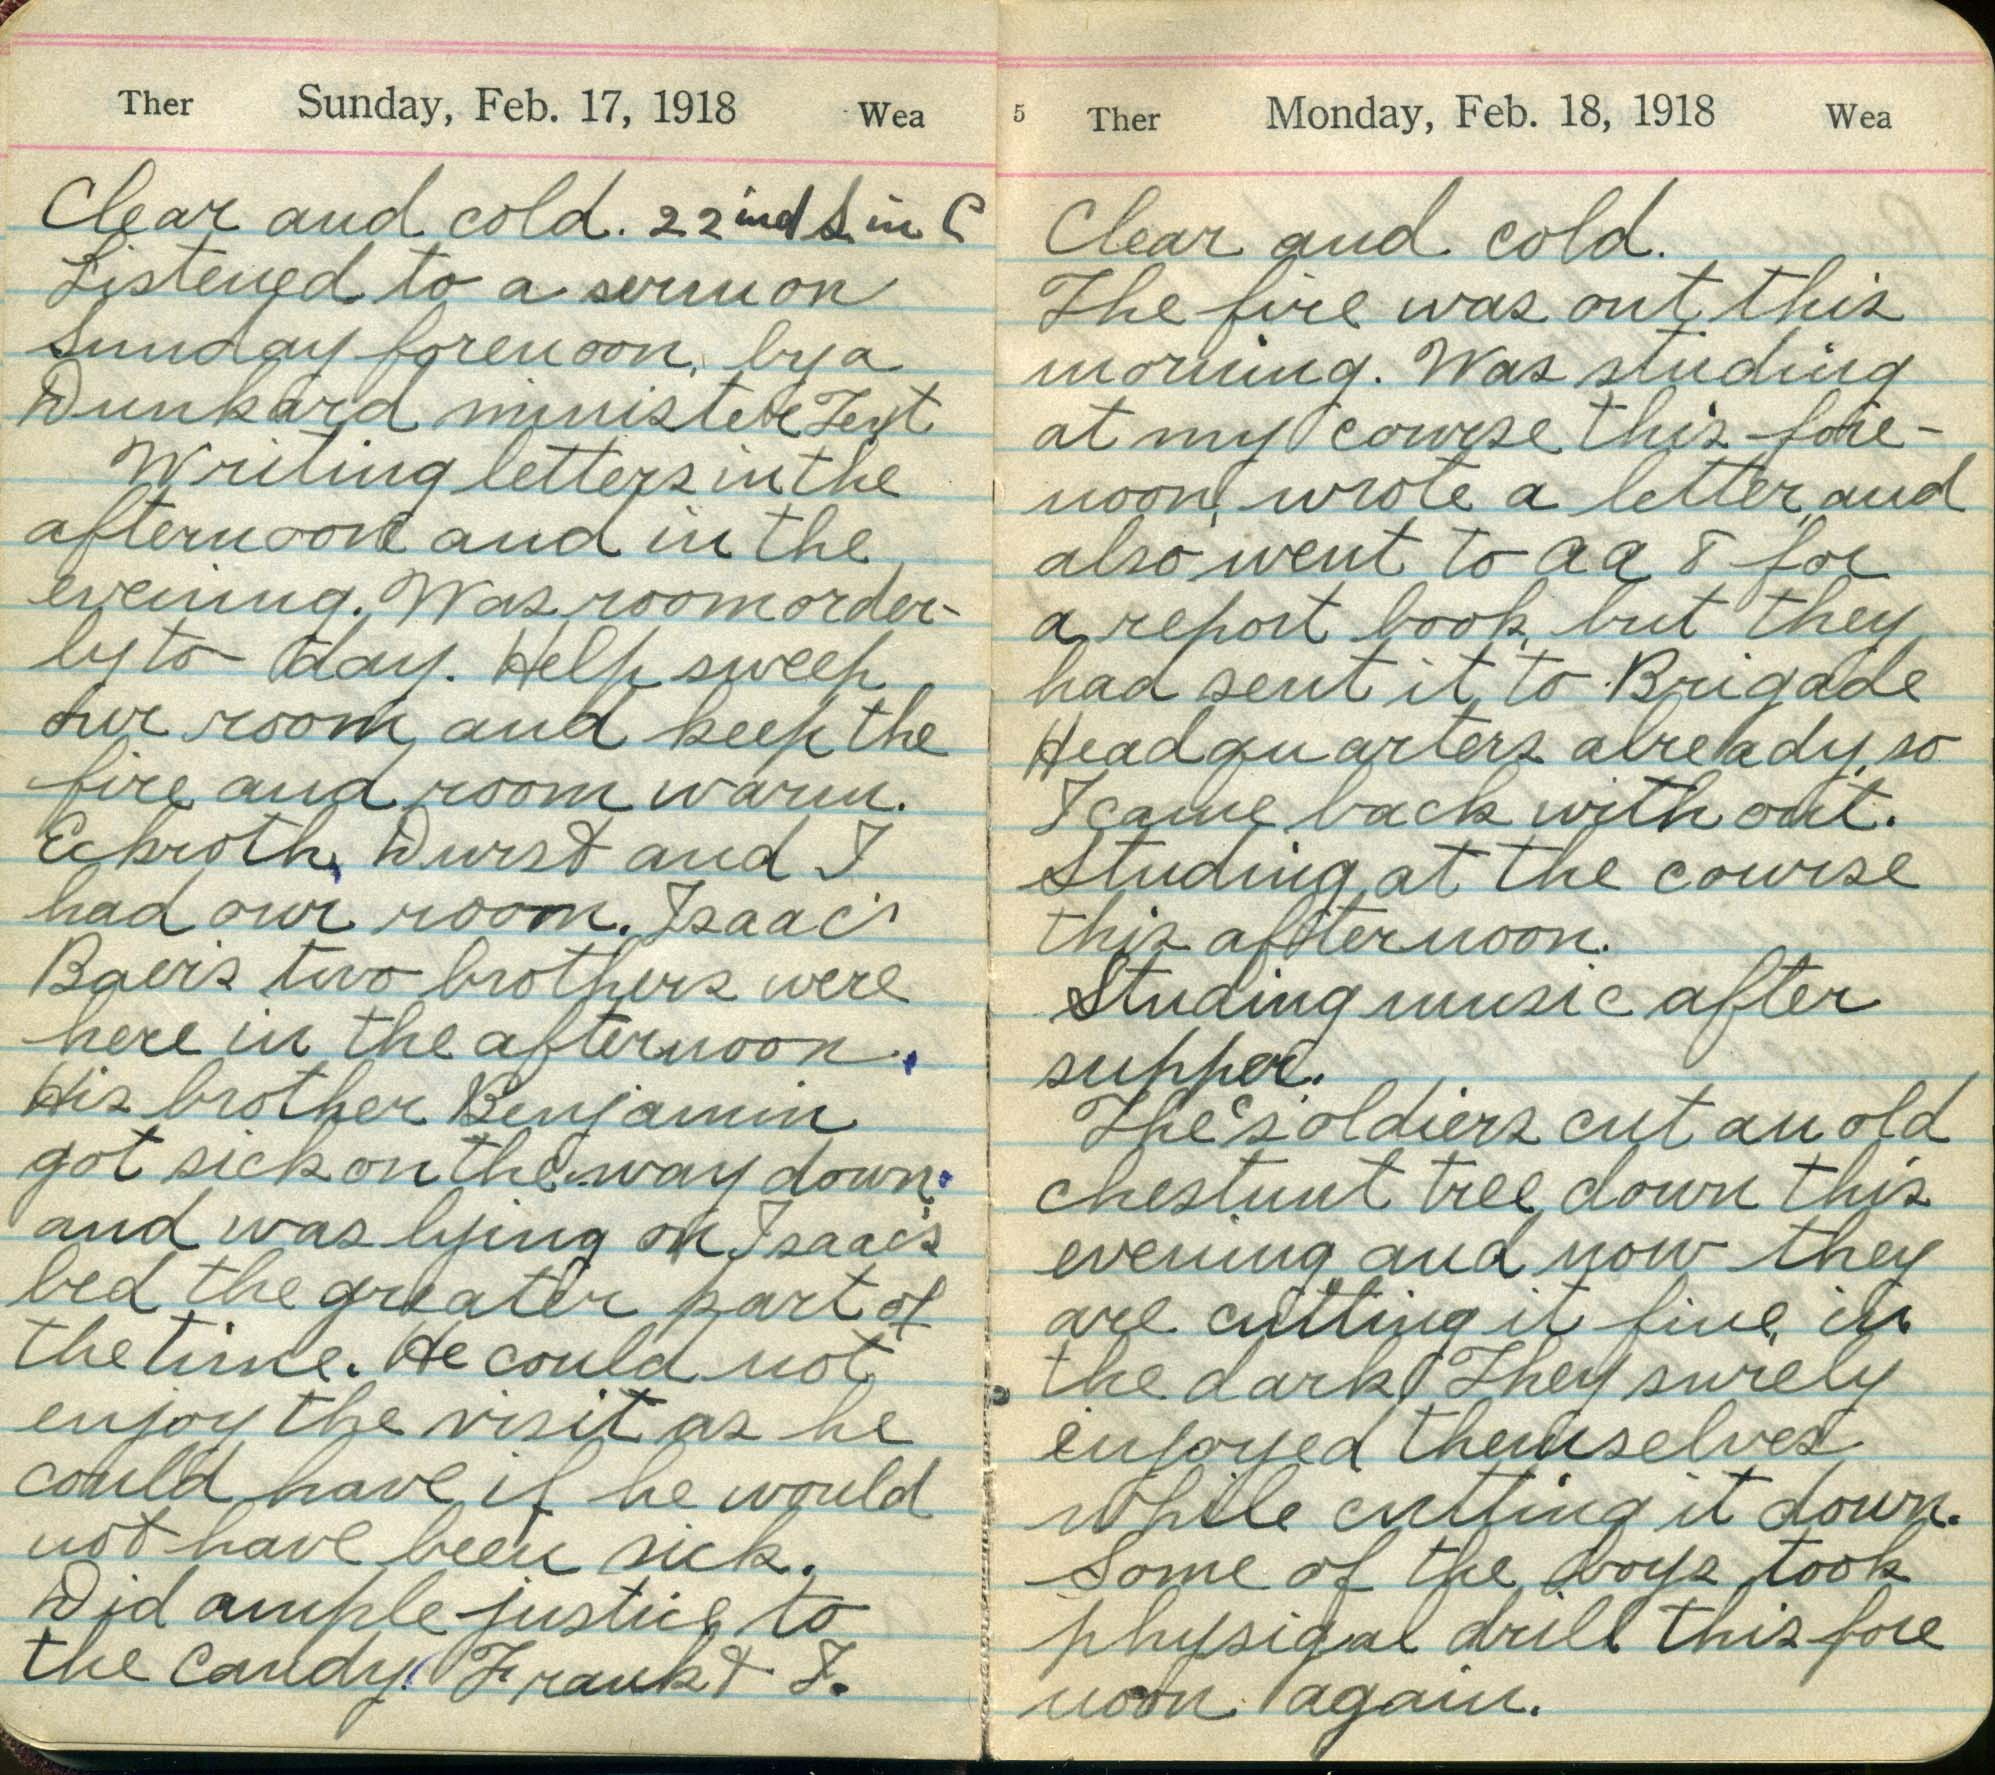 Ther Sunday, Feb. 17, 1918 Wea
Clear and cold. 22ind S in C
Listened to a sermon
Sunday forenoon, by a
Dunkard minister Text
Writing letters in the
afternoon and in the
evening. Was room order-
ly to day. Help sweep
our room and keep the
fire and room warm.
Eckroth, Durst and I
had our room. Isaac's
Baer's two brothers were
here in the afternoon.
His brother Benjamin
got sick on the way down.
and was lying on Isaac's
bed the greater part of
the time. He could not
enjoy the visit as he
could have if he would
not have been sick.
Did ample justice to
the candy. Frank & I.
5 Ther Monday, Feb. 18, 1918 Wea
Clear and cold.
The fire was out this
morning. Was studing
at my course this fore-
noon, wrote a letter and
also went to a a 8 for
a report book, but they
had sent it to Brigade
Headquarters already, so
I came back with out.
Studing at the course
this afternoon.
Studing music after
supper.
The soldiers cut an old
chestnut tree down this
evening and now they
are cutting it fine in
the dark. They surely
enjoyed themselves
while cutting it down.
Some of the boys took
physigal drill this fore
noon again.